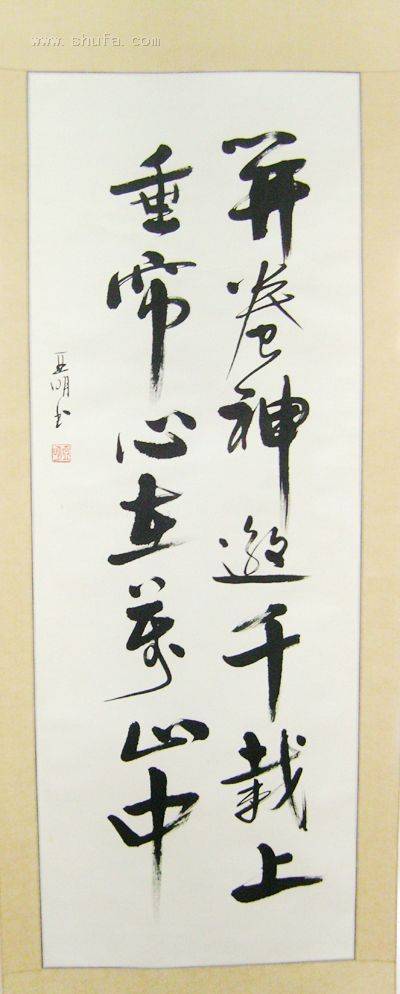 www.shufa.com
開卷神遊千載上
垂帘心在萬山中
亚明书